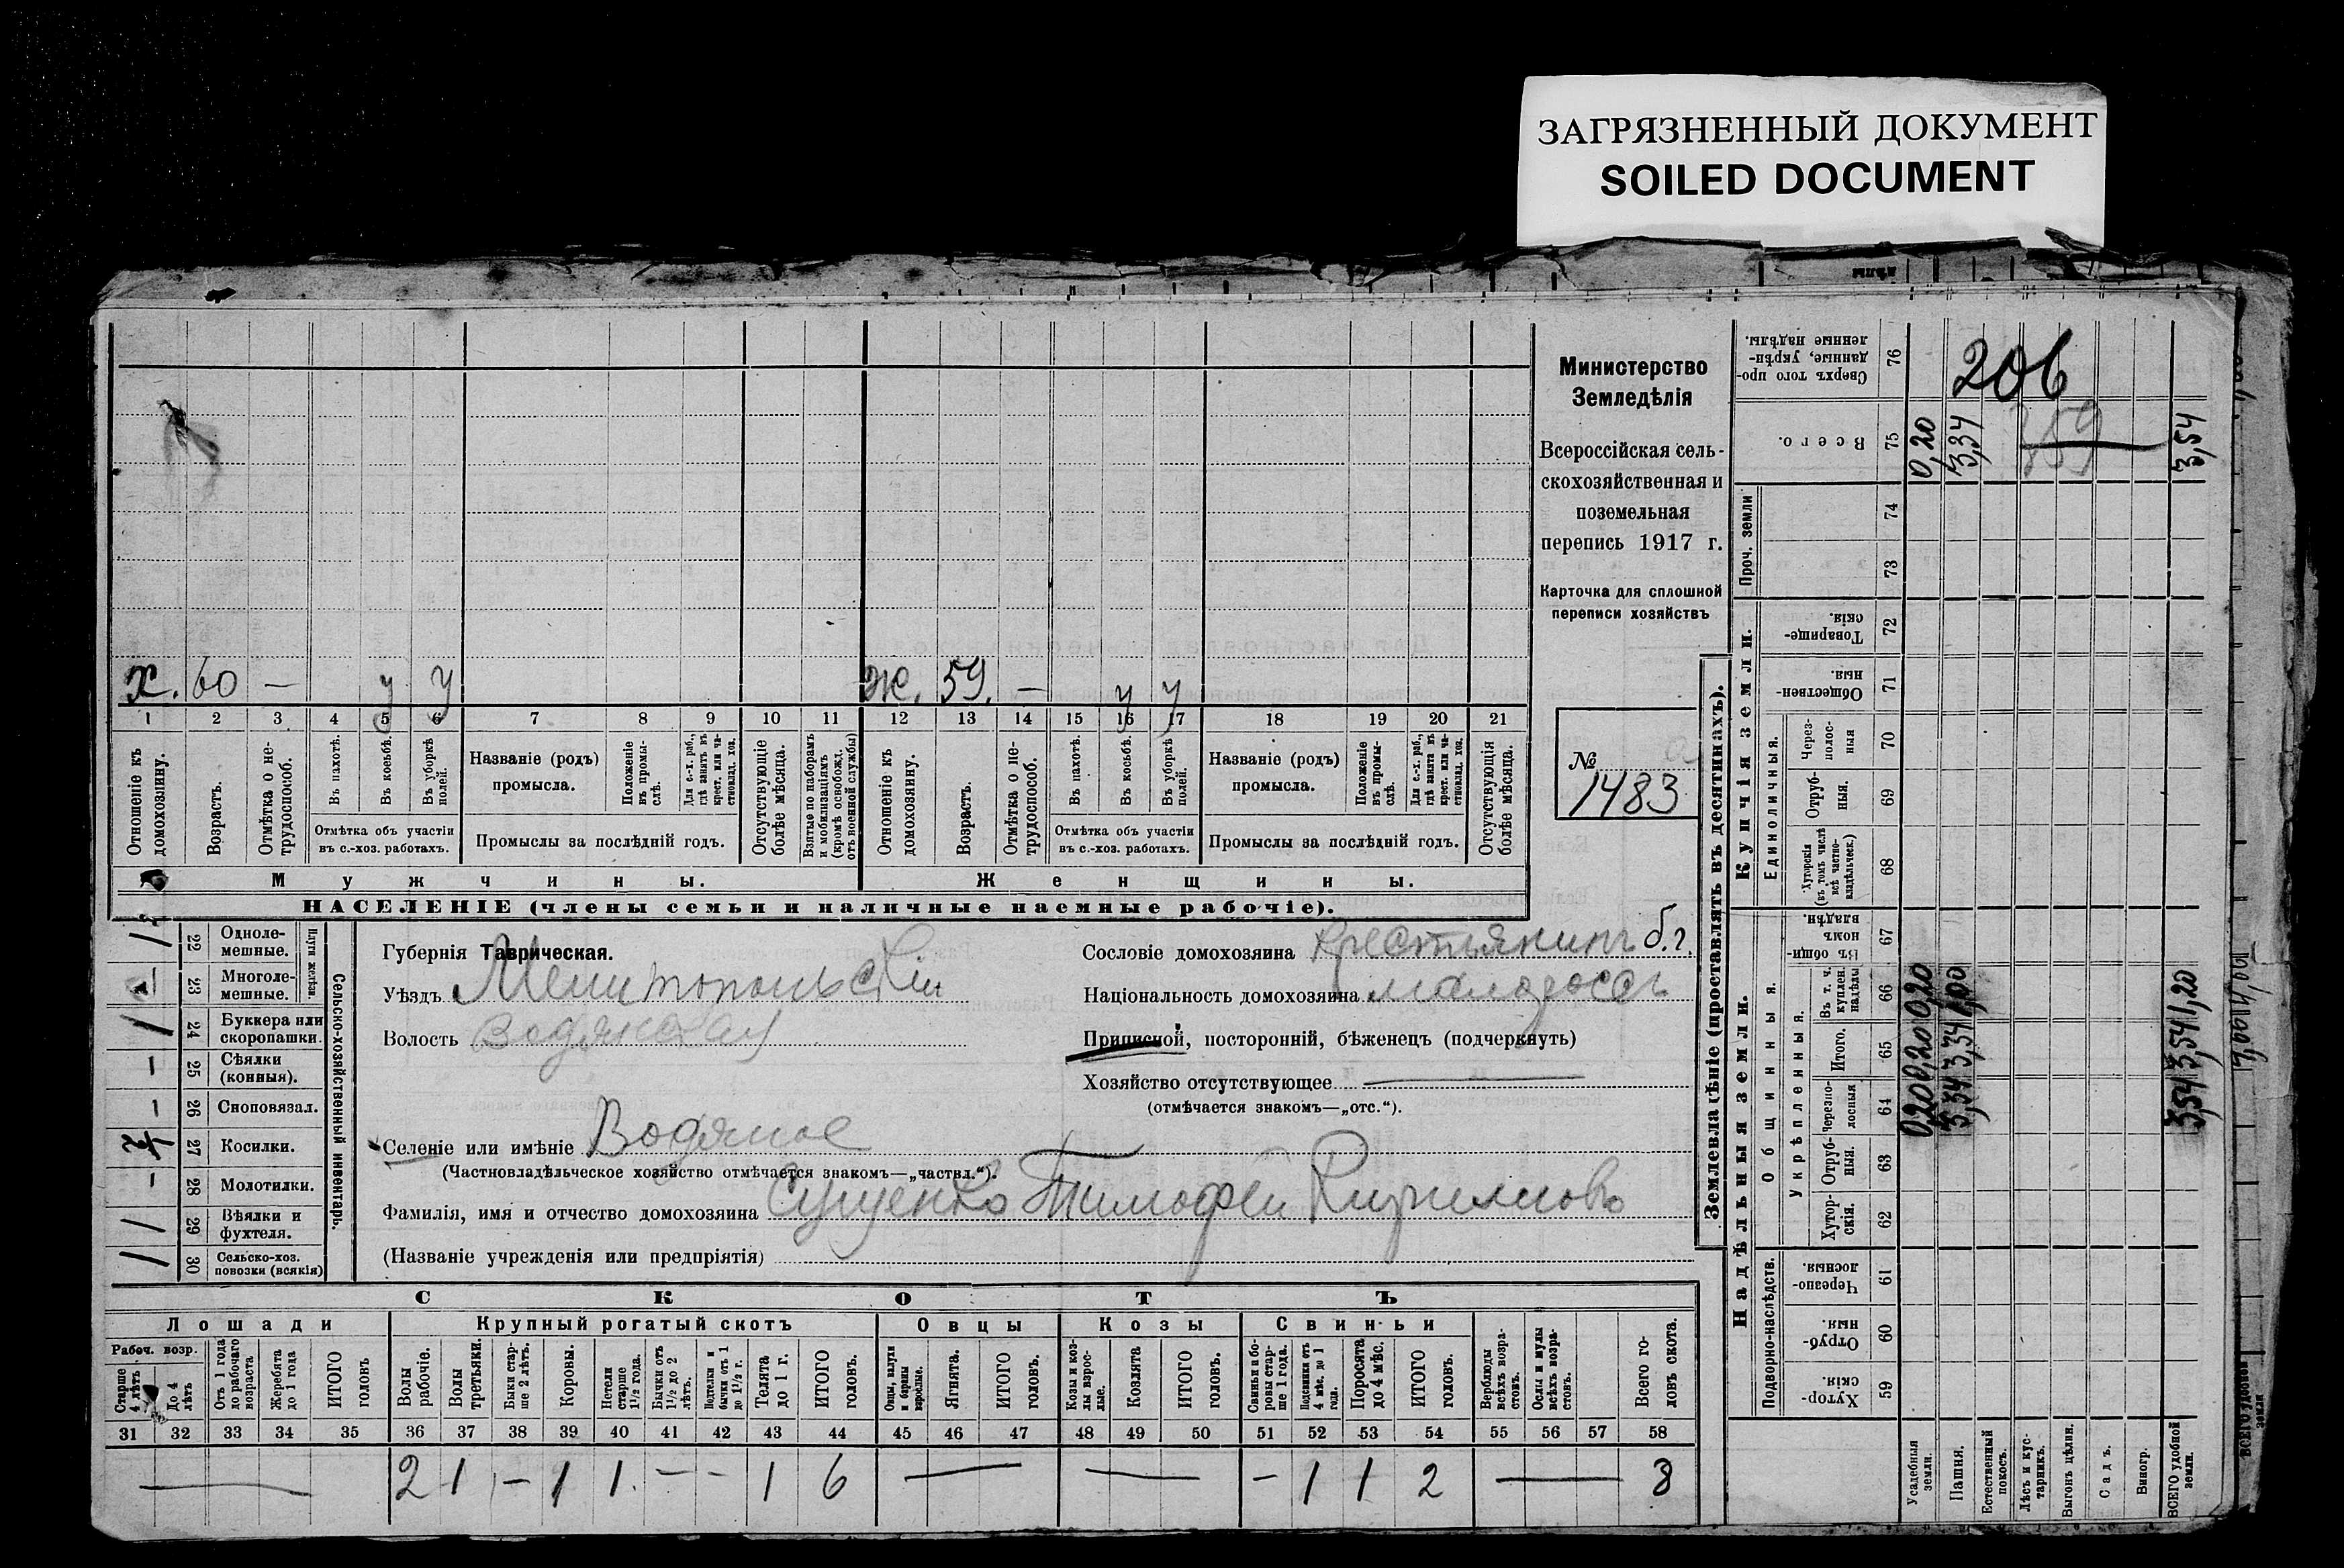 ЗАГРЯЗНЕННЫЙ ДОКУМЕНТ
SOILED DOCUMENT
Министерство
Земледѣлія
Всероссійская сель-
скохозяйственная и
поземельная
перепись 1917 г.
Карточка для сплошной
переписи хозяйствъ
№
1483
х. 60 — у у ж. 59. — у у
1 2 3 4 5 6 7 8 9 10 11 12 13 14 15 16 17 18 19 20 21
Отношеніе къ домохозяину.
Возрастъ.
Отмѣтка о не-трудоспособ.
Въ пахотѣ.
Въ косьбѣ.
Въ уборкѣ полей.
Отмѣтка объ участіи
въ с.-хоз. работахъ.
Названіе (родъ)
промысла.
Положеніе въ промы-слѣ.
Для с.-х. раб., гдѣ занятъ въ крест. или ча-стновлад. хоз.
Промыслы за послѣдній годъ.
Отсутствующіе болѣе мѣсяца.
Взятые по наборамъ и мобилизаціямъ (кромѣ освобожд. отъ военной службы)
Отношеніе къ домохозяину.
Возрастъ.
Отмѣтка о не-трудоспособ.
Въ пахотѣ.
Въ косьбѣ.
Въ уборкѣ полей.
Отмѣтка объ участіи
въ с.-хоз. работахъ.
Названіе (родъ)
промысла.
Положеніе въ промы-слѣ.
Для с.-х. раб., гдѣ занята въ крест. или ча-стновлад. хоз.
Промыслы за послѣдній годъ.
Отсутствующія болѣе мѣсяца.
Мужчины.
Женщины.
НАСЕЛЕНІЕ (члены семьи и наличные наемные рабочіе).
Сельско-хозяйственный инвентарь.
Плуги желѣзн.
22 Одноле-мешные.
23 Многоле-мешные.
24 Буккера или скоропашки.
25 Сѣялки (конныя).
26 Сноповязал.
27 Косилки.
28 Молотилки.
29 Вѣялки и фухтеля.
30 Сельско-хоз. повозки (всякія)
Губернія Таврическая.
Уѣздъ Мелитопольскій
Волость Водянская
Селеніе или имѣніе Водяное
(Частновладѣльческое хозяйство отмѣчается знакомъ—„частвл.“).
Фамилія, имя и отчество домохозяина Сущенко Тимофей Кирилловъ
(Названіе учрежденія или предпріятія)
Сословіе домохозяина Крестьянинъ б.г.
Національность домохозяина малороссъ
Приписной, посторонній, бѣженец (подчеркнуть)
Хозяйство отсутствующее —
(отмѣчается знакомъ—„отс.“).
СКОТЪ
Лошади
Крупный рогатый скотъ
Овцы
Козы
Свиньи
Рабоч. возр.
Старше 4 лѣтъ
До 4 лѣтъ
Отъ 1 года до рабочаго возраста
Жеребята до 1 года
ИТОГО головъ
Волы рабочіе.
Волы третьяки.
Быки стар-ше 2 лѣтъ.
Коровы.
Нетели старше 1½ года.
Бычки отъ 1½ до 2 лѣтъ.
Подтелки и бычки отъ 1 до 1½ г.
Телята до 1 г.
ИТОГО головъ.
Овцы, валухи и бараны взрослые.
Ягнята.
ИТОГО головъ.
Козы и коз-лы взрос-лые.
Козлята
ИТОГО головъ.
Свиньи и бо-ровы стар-ше 1 года.
Подсвинки отъ 4 мѣс. до 1 года.
Поросята до 4 мѣс.
ИТОГО головъ.
Верблюды всѣхъ возра-стовъ.
Ослы и мулы всѣхъ возра-стовъ.
Всего го-ловъ скота.
31 32 33 34 35 36 37 38 39 40 41 42 43 44 45 46 47 48 49 50 51 52 53 54 55 56 57 58
— 2 1 - 1 1. - - 1 6 — — - 1 1 2 — 8
Землевладѣніе (проставлять въ десятинахъ).
Купчія земли.
Надѣльныя земли.
Проч. земли
Единоличныя.
Общинныя.
Укрѣпленныя.
Подворно-наслѣдств.
Сверхъ того про-данные, укрѣп-ленные надѣлы. 76
Всего. 75
74
73
Товарище-скія. 72
Обществен-ныя 71
Черезполос-ныя 70
Отруб-ныя. 69
Хуторскія (въ томъ числѣ всѣ частно-владѣльческ.) 68
Въ общин-номъ владѣн. 67
Въ т. ч. куплен. надѣлы 66
Итого. 65
Черезпо-лосныя 64
Отруб-ныя. 63
Хутор-скія. 62
Черезпо-лосныя. 61
Отруб-ныя. 60
Хутор-скія. 59
206
359
0,20
3,34
3,54
0,20 0,20 0,20
3,34 3,34 1,00
3,54 3,54 1,20
Усадебныя земли.
Пашня.
Естественный покосъ.
Лѣсъ и кус-тарникъ.
Выгонъ цѣлин.
Садъ.
Виногр.
ВСЕГО удобной земли.